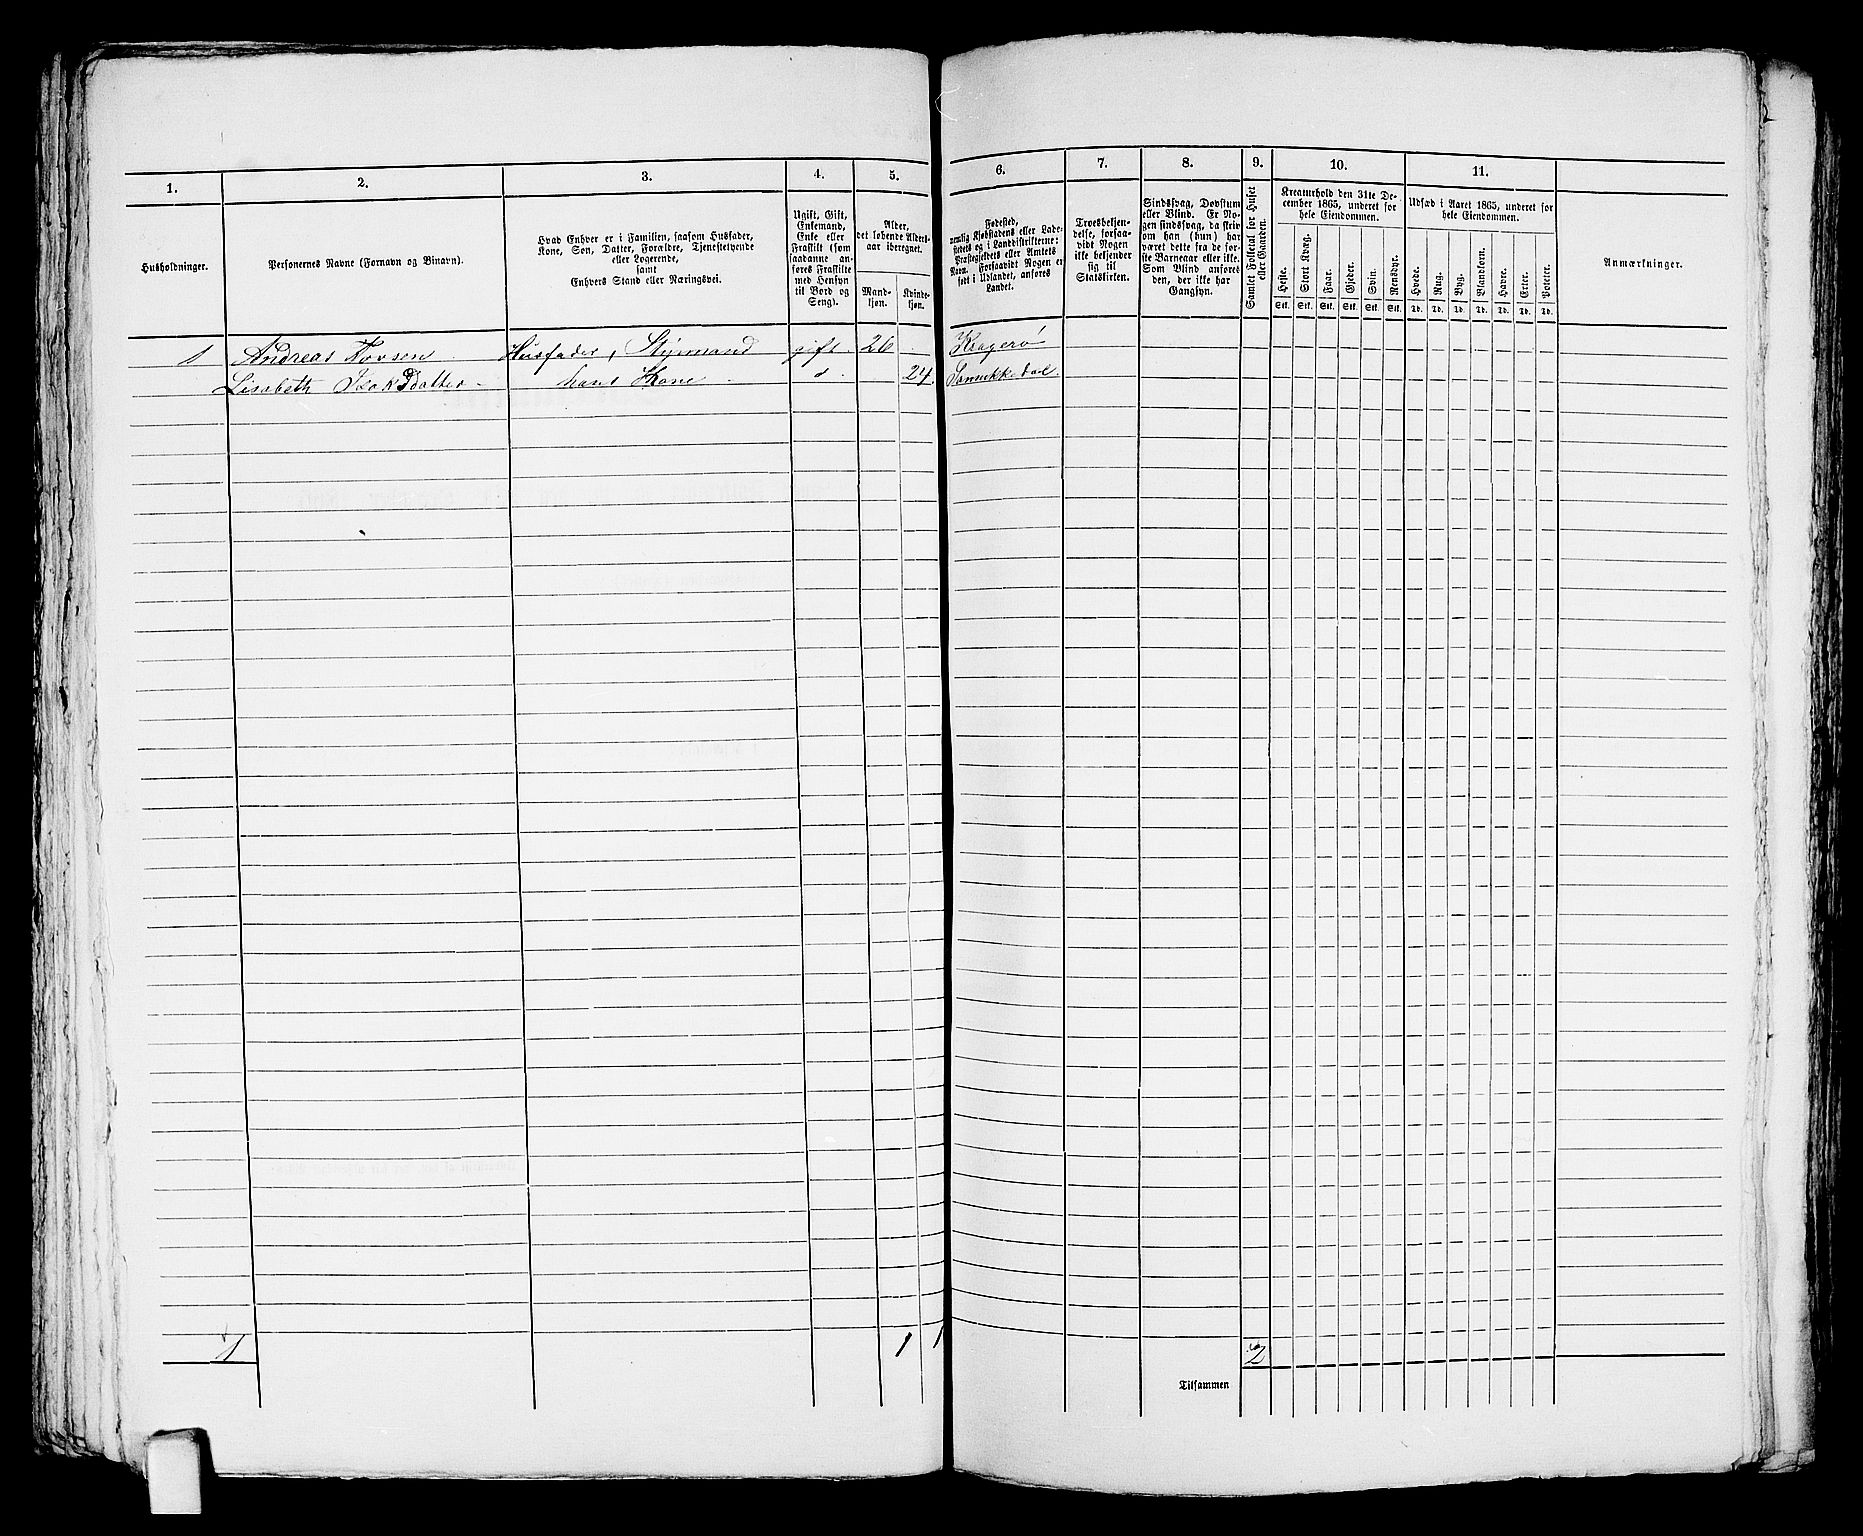 1.
2.
3.
4.
5.
6.
7.
8.
9.
10.
11.
Husholdninger.
Personernes Navne (Fornavn og Binavn).
Hvad Enhver er i Familien, saasom Husfader,
Kone, Søn, Datter, Forældre, Tjenestetyende
eller Logerende,
samt
Enhvers Stand eller Næringsvei.
Ugift, Gift,
Enkemand,
Enke eller
Fraskilt (som
saadanne an-
føres Fraskilte
med Hensyn
til Bord og
Seng).
Alder,
det løbende Alders-
aar iberegnet.
Mand-
kjøn.
Kvinde-
kjøn.
Fødested,
nemlig Kjøbstadens eller Lade-
stedets og i Landdistrikterne:
Præstegjeldets eller Amtets
Navn. Forsaavidt Nogen er
født i Udlandet, anføres
Landet.
Troesbekjen-
delse, forsaa-
vidt Nogen
ikke bekjender
sig til
Statskirken.
Sindssvag, Døvstum
eller Blind. Er No-
gen sindssvag, da skriv
om han (hun) har
været dette fra de før-
ste Barneaar eller ikke.
Som Blind anføres
den, der ikke har
Gangsyn.
Samlet Folketal for Huset
eller Gaarden.
Kreaturhold den 31te De-
cember 1865, underet for
hele Eiendommen.
Heste.
Stort Kvæg.
Faar.
Gjeder.
Svin.
Rensdyr.
Stk. Stk. Stk. Stk. Stk. Stk.
Udsæd i Aaret 1865, underet for
hele Eiendommen.
Hvede.
Rug.
Byg.
Blandkorn.
Havre.
Erter.
Poteter.
Td. Td. Td. Td. Td. Td. Td.
Anmærkninger.
1 Andreas Husfader, Styrmand gift. 26 Kragerø
Lisabeth Isaksdatter hans Kone 24. Sannikedal.
1 1 1 2
Tilsammen